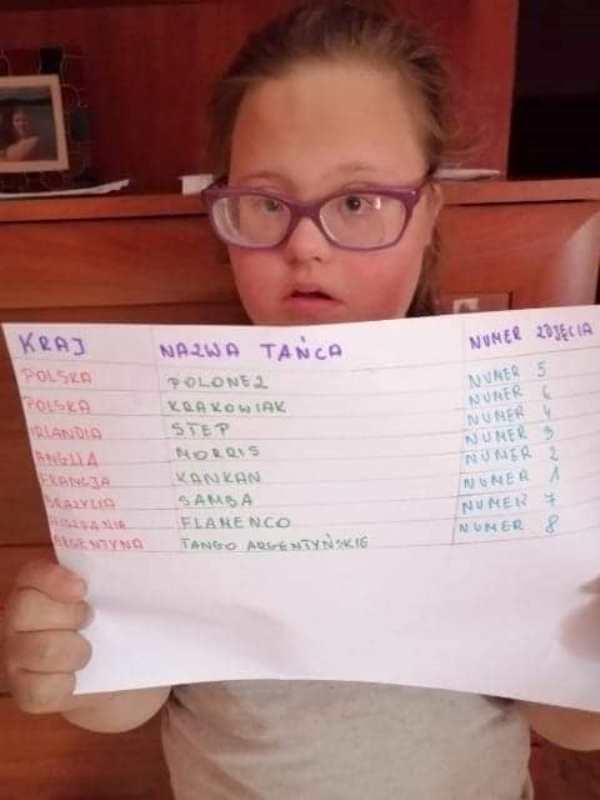 KRAJ NAZWA TAŃCA NUMER ZDJĘCIA
POLSKA POLONEZ NUMER 5
POLSKA KRAKOWIAK NUMER 6
IRLANDIA STEP NUMER 4
ANGLIA MORRIS NUMER 3
FRANCJA KANKAN NUMER 2
BRAZYLIA SAMBA NUMER 1
HISZPANIA FLAMENCO NUMER 7
ARGENTYNA TANGO ARGENTYŃSKIE NUMER 8